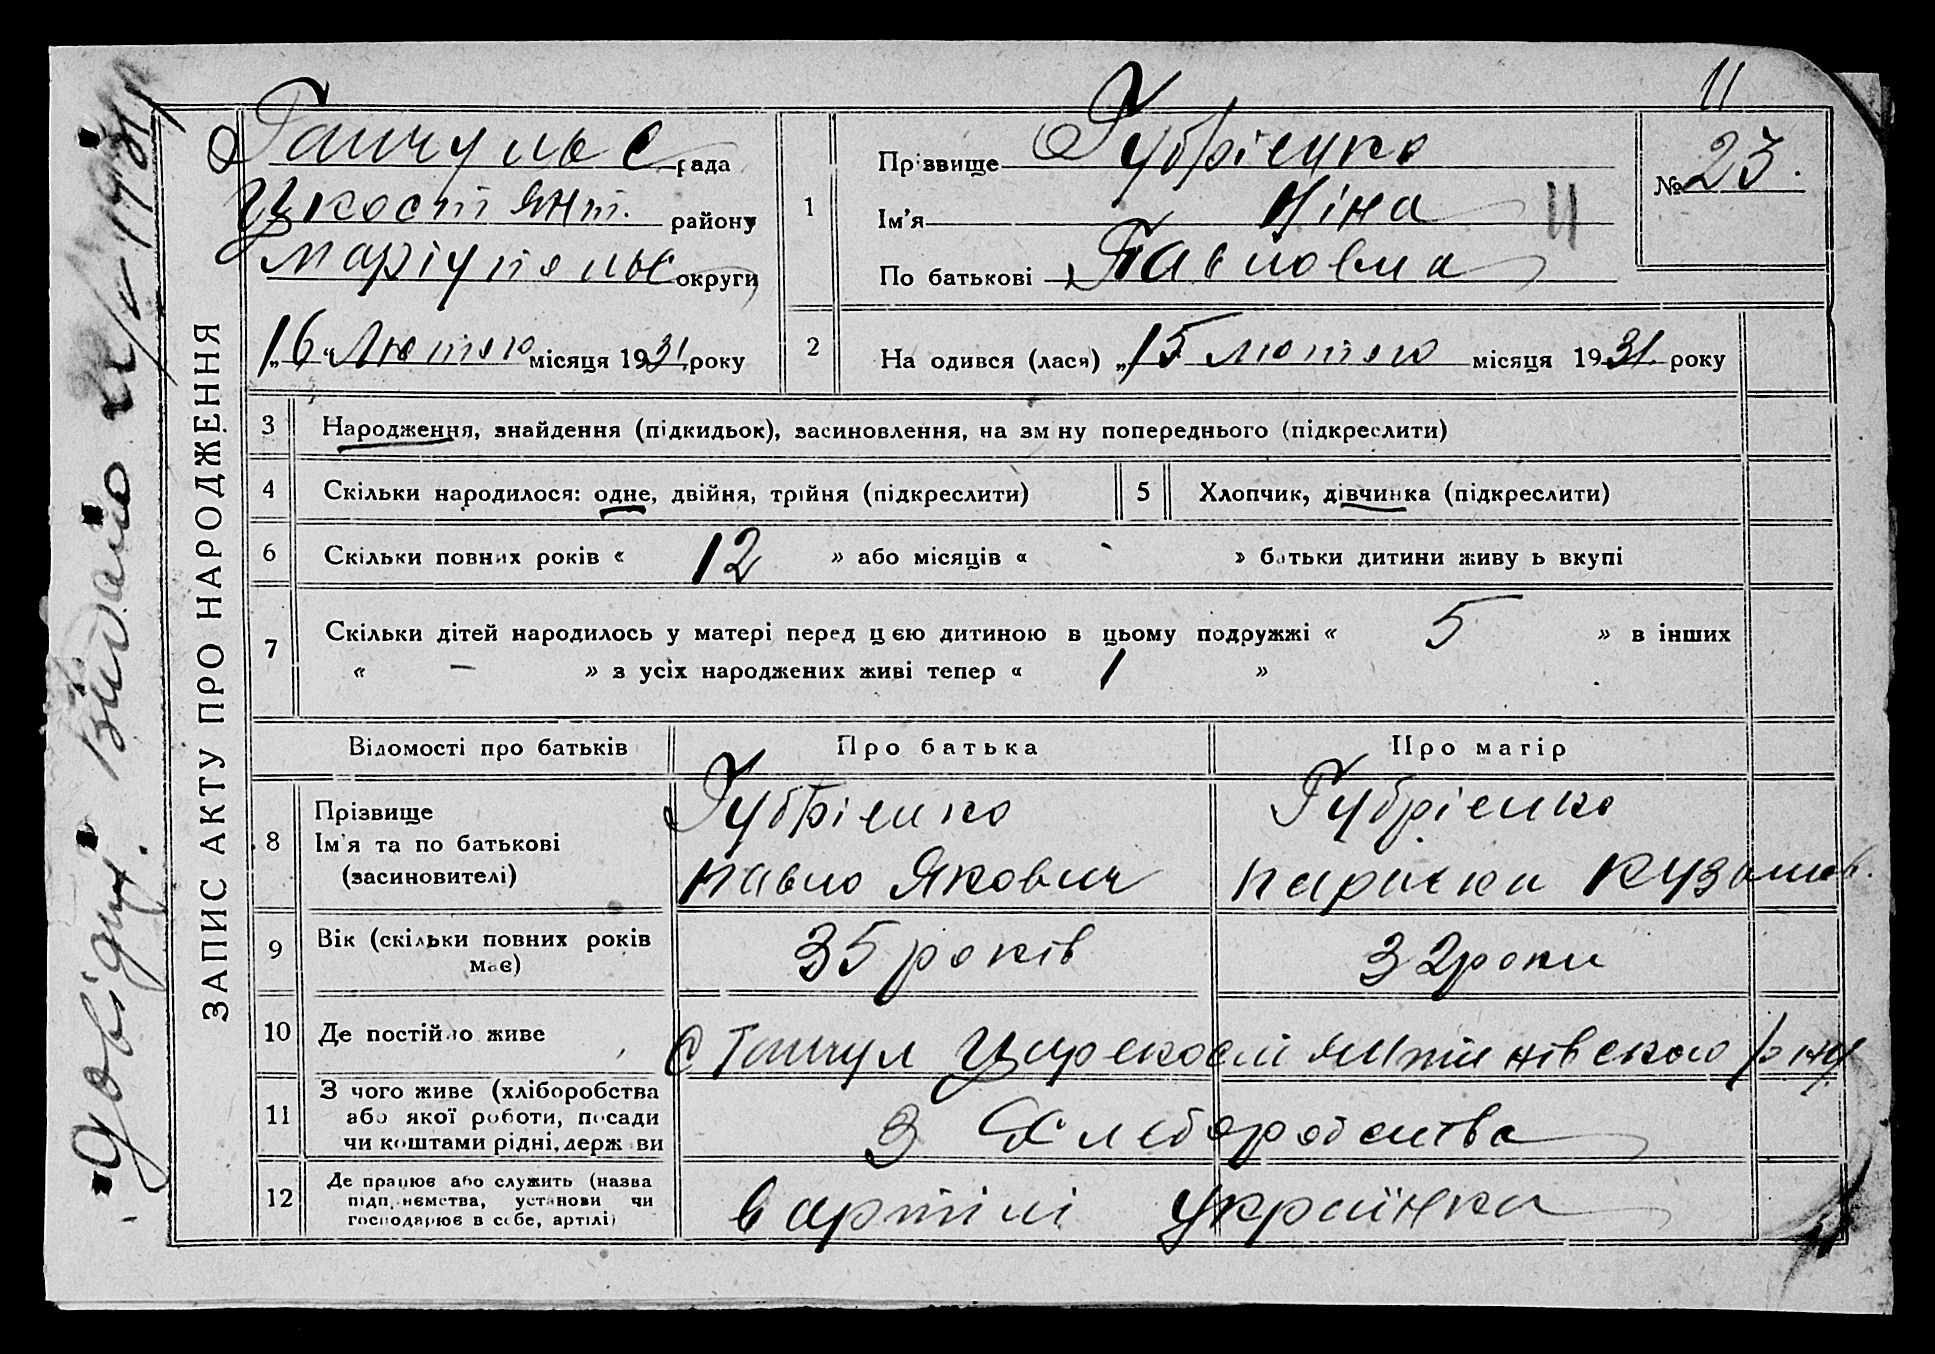 11
ЗАПИС АКТУ ПРО НАРОДЖЕННЯ
Довідку Видано
рада
району
Маріупольс округи
„16“ Лютого місяця 1931 року
1 Прізвище Губрієнко
Ім'я Ніна
По батькові Павловна
№ 23.
2 На одився (лася) „15 лютого місяця 1931 року
3 Народження, знайдення (підкидьок), засиновлення, на зм ну попереднього (підкреслити)
4 Скільки народилося: одне, двійня, трійня (підкреслити) 5 Хлопчик, дівчинка (підкреслити)
6 Скільки повних років « 12 » або місяців « - » батьки дитини живу ь вкупі
7 Скільки дітей народилось у матері перед цєю дитиною в цьому подружжі « 5 » в інших
« — » з усіх народжених живі тепер « 1 »
Відомості про батьків Про батька Про матір
8 Прізвище Губрієнко Губрієнко
Ім'я та по батькові
(засиновителі) Павло Якович Параска Кузьмів.
9 Вік (скільки повних років 35 років 32 роки
має)
10 Де постійно живе
11 З чого живе (хліборобства
або якої роботи, посади З Хлеборобства
чи коштами рідні, держ ви
12 Де працює або служить (назва
підп, нємства, установи чи в артілі Українка
господарює в себе, артілі)